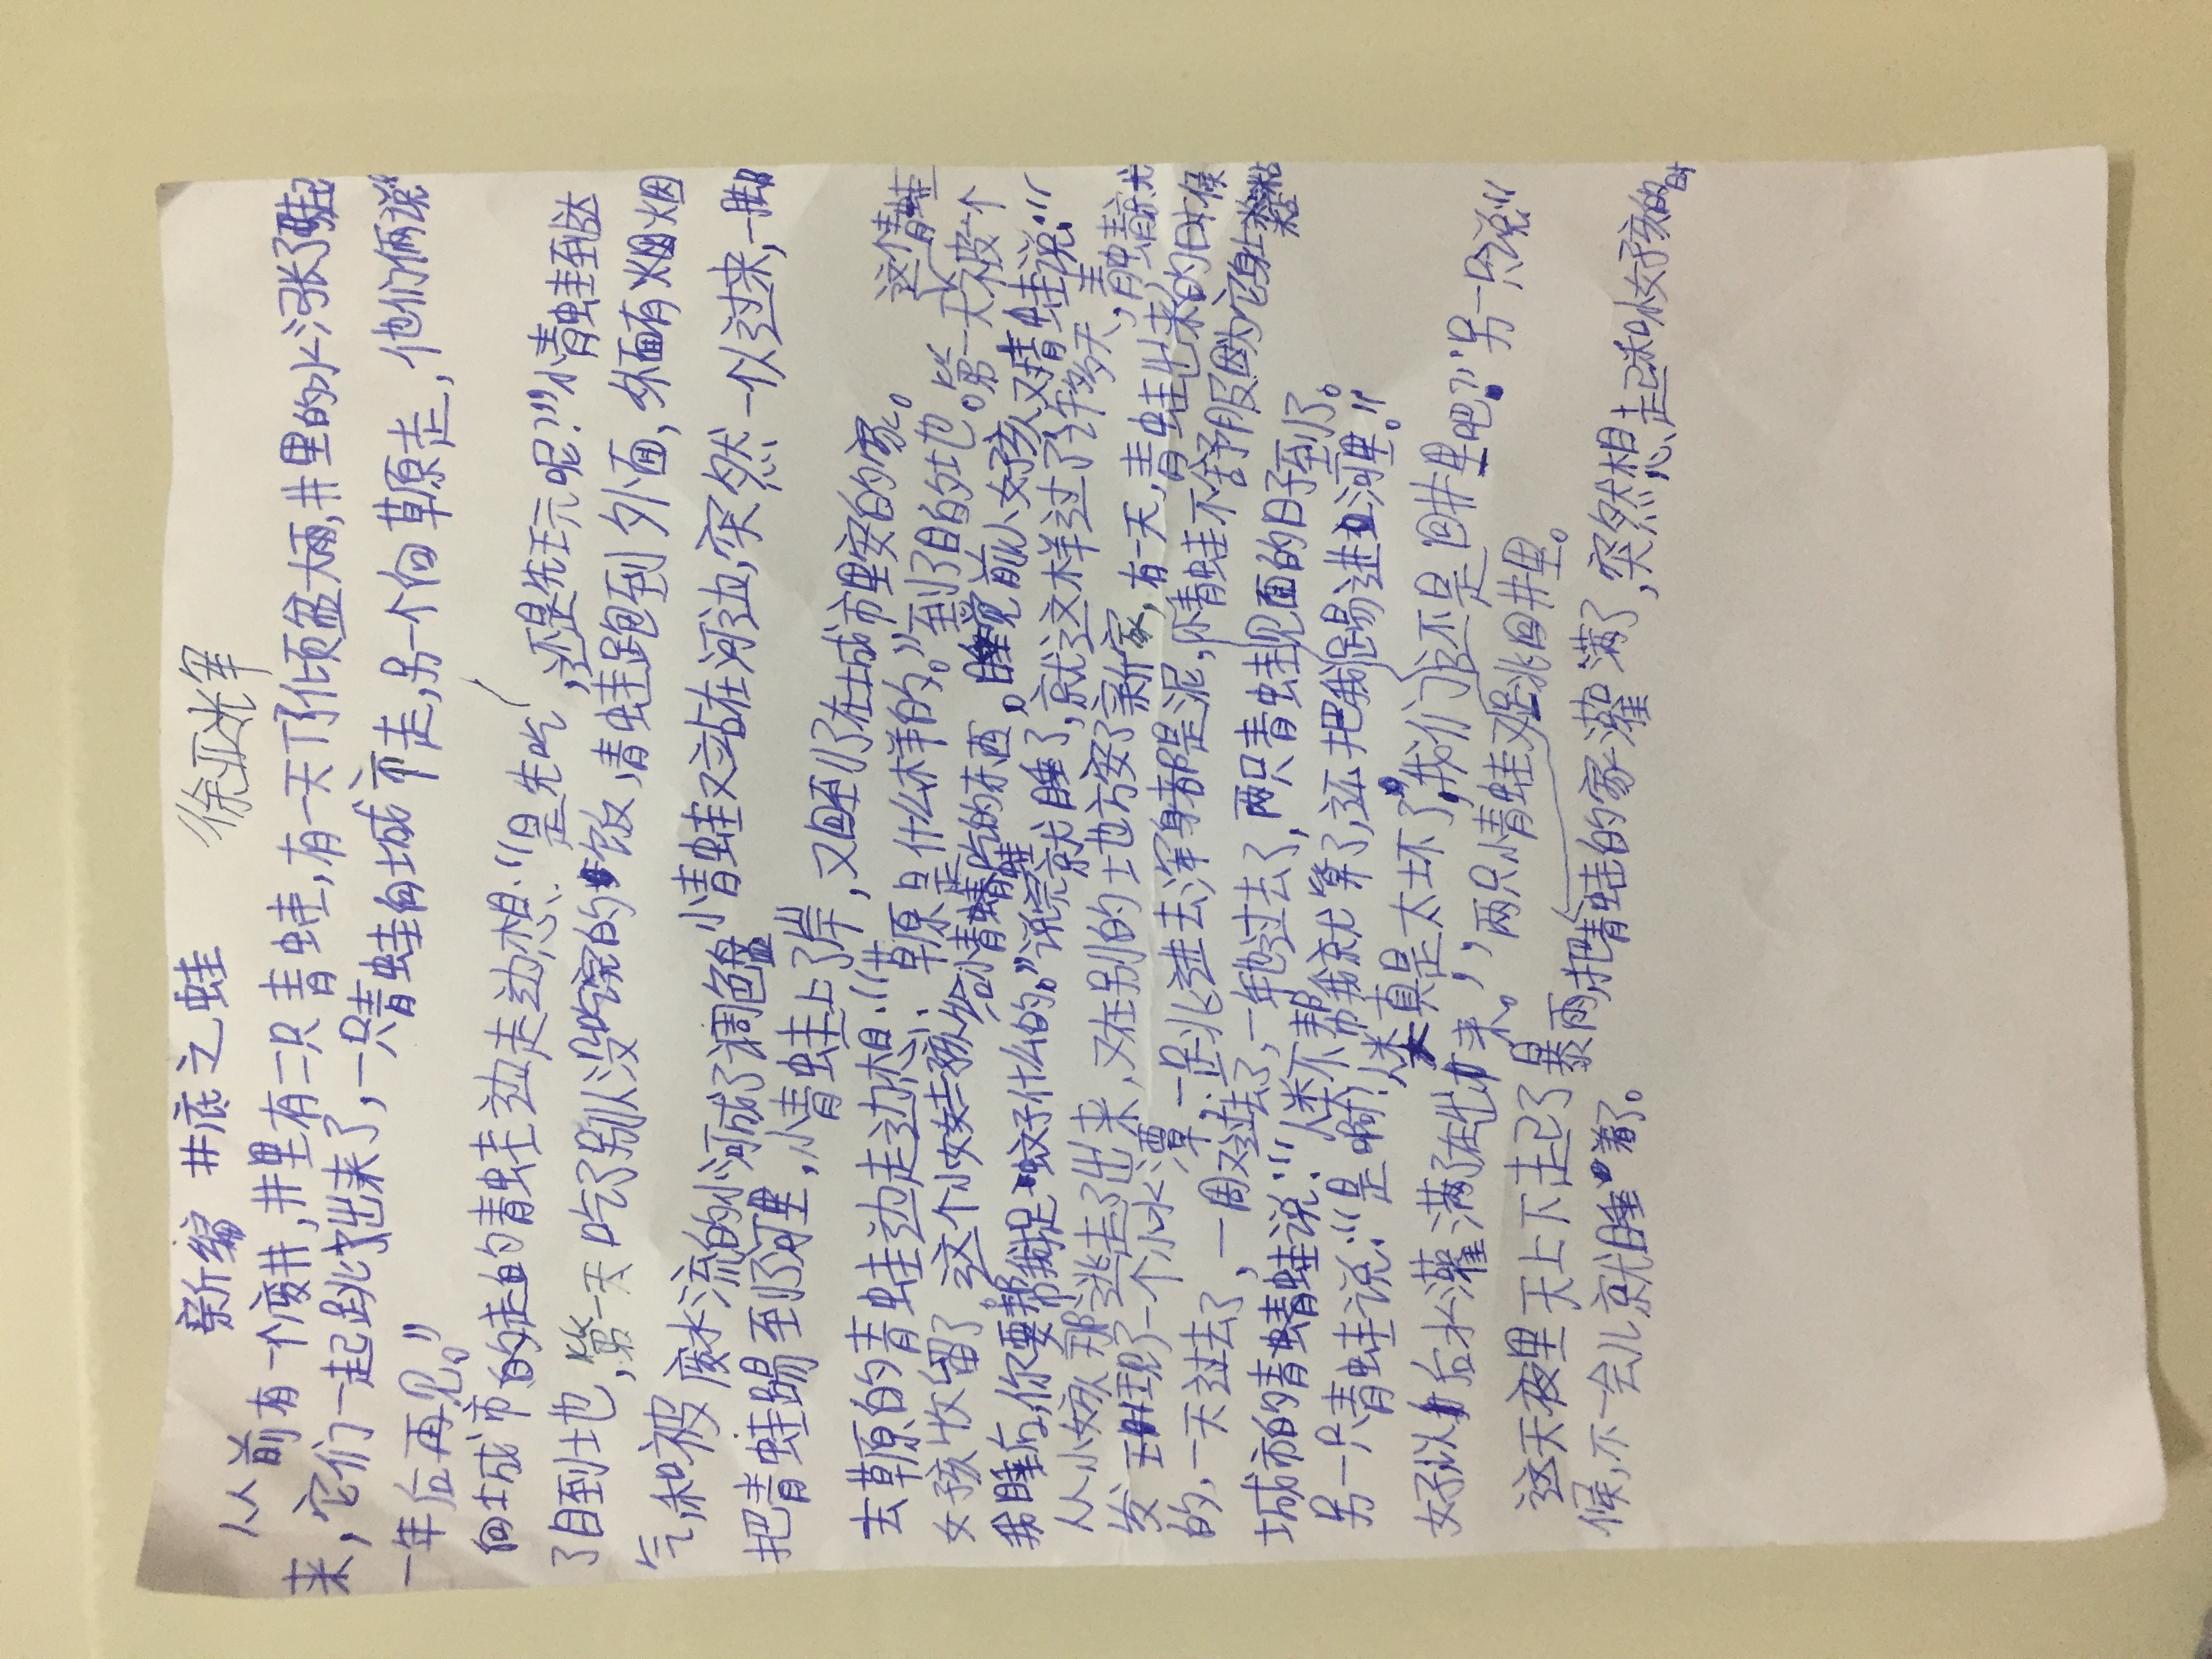 新编 井底之蛙 徐亚米军
从前有一个废井,井里有二只青蛙,有一天下了倾盆大雨,井里的水涨了起
来,它们一起跳出来了,一只青蛙向城市走,另一个向草原走,他们俩说“
一年后再见。”
向城市的走的青蛙走边走边想:“是先吃,还是先玩呢?”小青蛙到达
了目到土也,第一天吃了别人没吃完的饭,青蛙跑到外面,外面有烟
气,和被废水流的小河成了调色盘小青蛙又站在河边,突然一个人过来,一脚
把青蛙踢到了河里,小青蛙上了岸,又回到了在城市里安的家。
去草原的青蛙边走边想:“草原是什么样的。”到了目的地。第一天被一个
女孩收留了 这个小女孩给小青蛙吃的东西。睡觉前小女孩又对青蛙说:“
我睡后,你要帮我捉蚊子什么的。”说完就睡了,就这样过了许多天,青蛙就
从小女孩那逃走了出来,又在别的土地方安了新家,有一天,青蛙出来的时候
发现了一个小水潭,一跳进去浑身都是泥,小青蛙不舒服因为它身上粘粘
的,一天过去了,一周又过去了,一年也过去了,两只青蛙见面的日子到了。
城市的青蛙说:“人类不帮我就算了,还把我踢进河里。”
另一只青蛙说:“是啊!人类真是太坏了,我们还是回井里吧?”另一只说:“
好以后水灌满了在出来。”,两只小青蛙又跳回井里。
这天夜里天上下起了暴雨,把青蛙的家灌满了,突然想起和小女孩的时
候,不一会儿就睡着了。